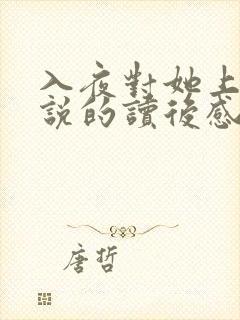 入夜對她上
說的讀後感
唐哲